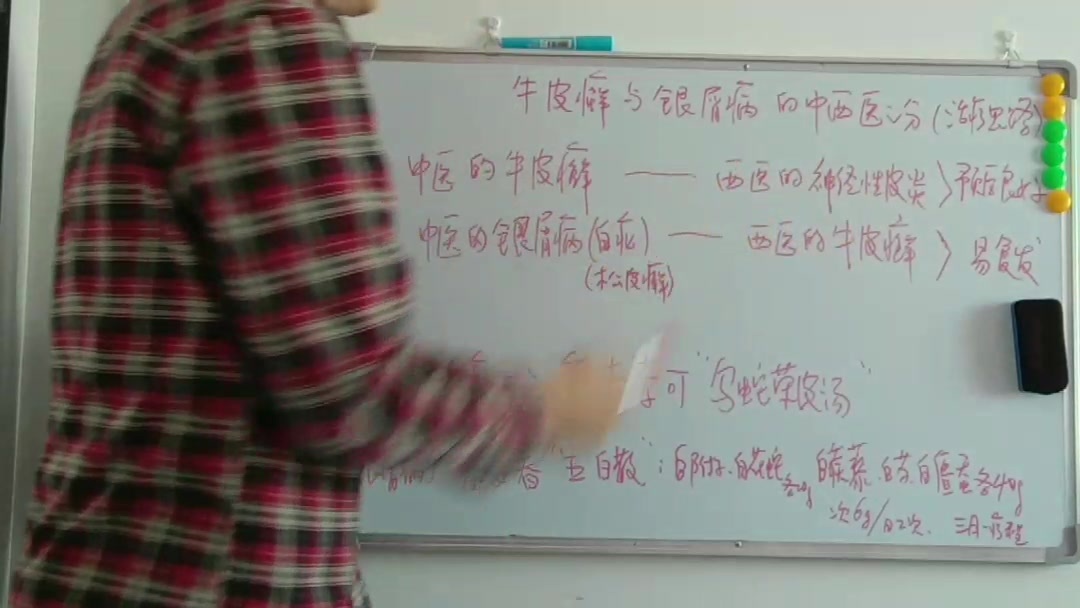 牛皮癣与银屑病的中西医区分(
中医的牛皮癣 —— 西医的神经性皮炎 > 预后良好
中医的银屑病(白疕) —— 西医的牛皮癣 > 易复发
(松皮癣)
可"乌蛇荣皮汤"
"五白散":白附子.白花蛇各20g 白蒺藜.白芍.白僵蚕各40g
次6g/日2次. 三月一疗程